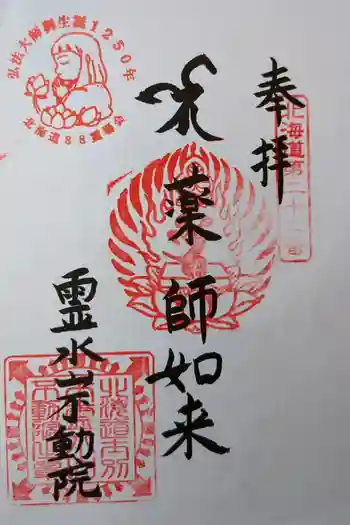 奉拝
北海道第二十二番
薬師如来
霊水不動院
弘法大師御生誕1250年
北海道88霊場会